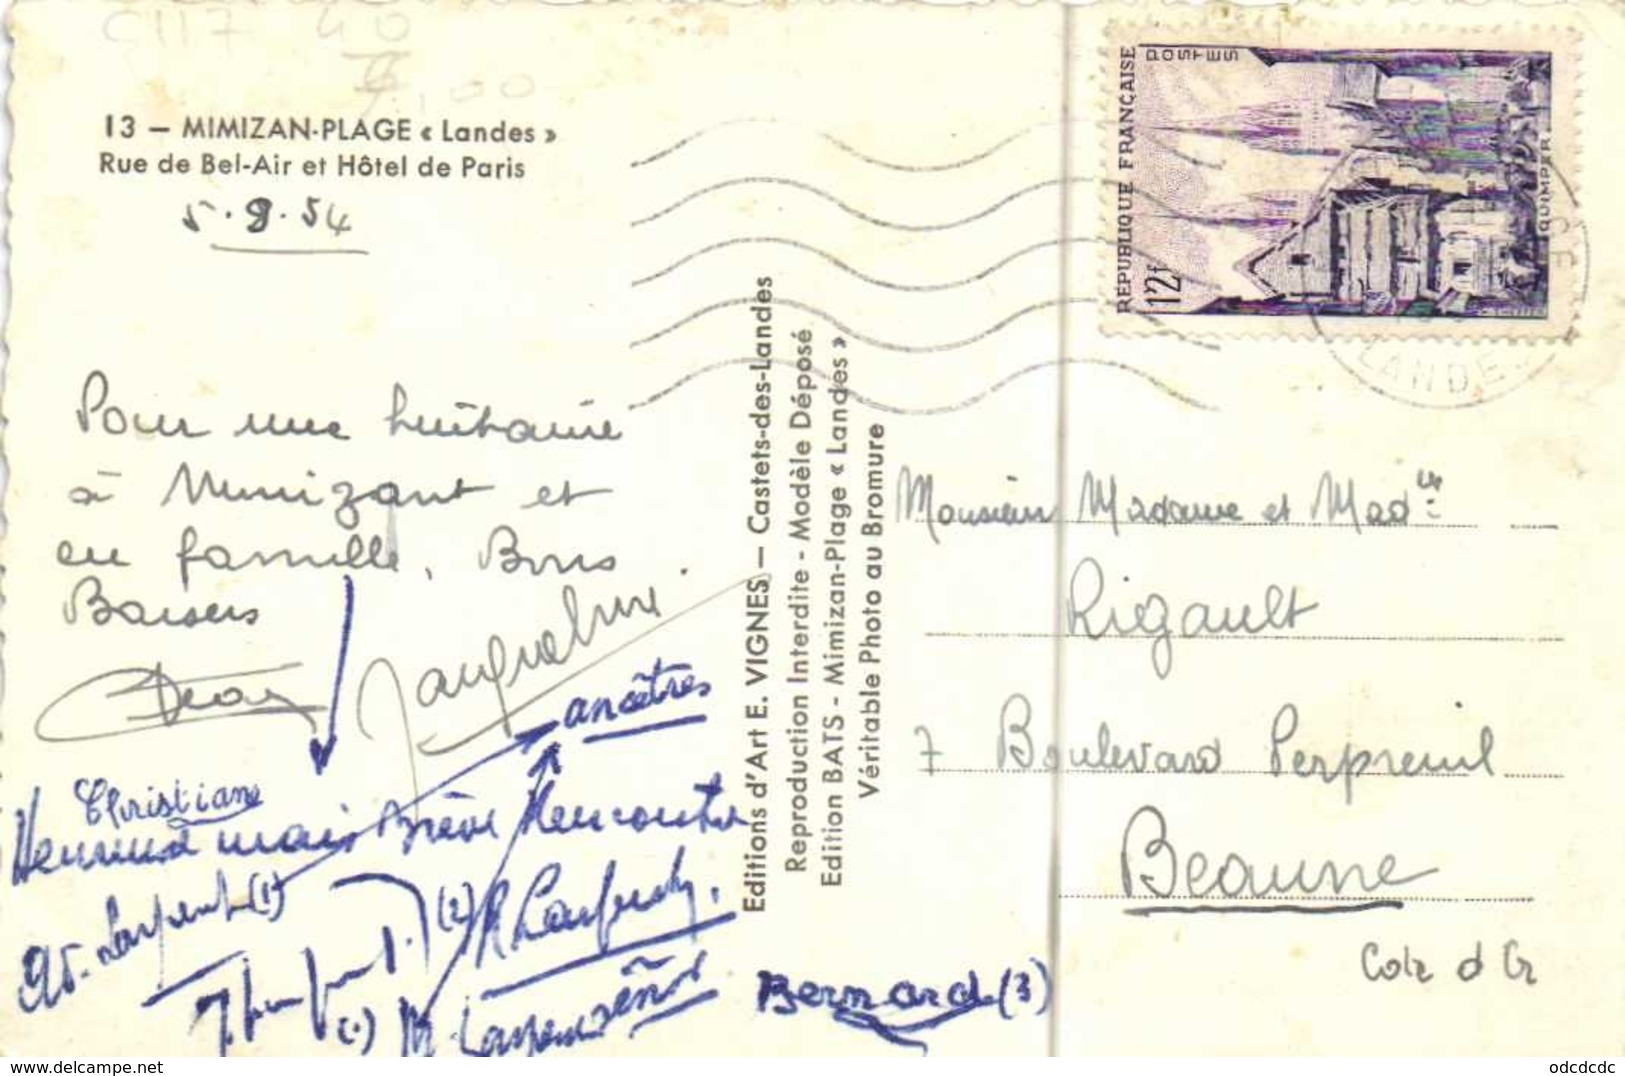 13 — MIMIZAN-PLAGE « Landes »
Rue de Bel-Air et Hôtel de Paris
5.9.54
Pour une huitaine
à Mimizant et
en famille, Bons
Baisers
Jean Jacqueline
ancêtres
Christiane
Heureuse mais Brève Rencontre
Larpent (1)
(2)
(.)
Bernard (3)
Editions d'Art E. VIGNES — Castets-des-Landes
Reproduction Interdite - Modèle Déposé
Edition BATS - Mimizan-Plage « Landes »
Véritable Photo au Bromure
RÉPUBLIQUE FRANÇAISE
POSTES
12f
QUIMPER
LANDES
Monsieur Madame et Mad<sup>lle</sup>
Rigault
7 Boulevard Perpreuil
Beaune
Cote d Or
odcdcdc